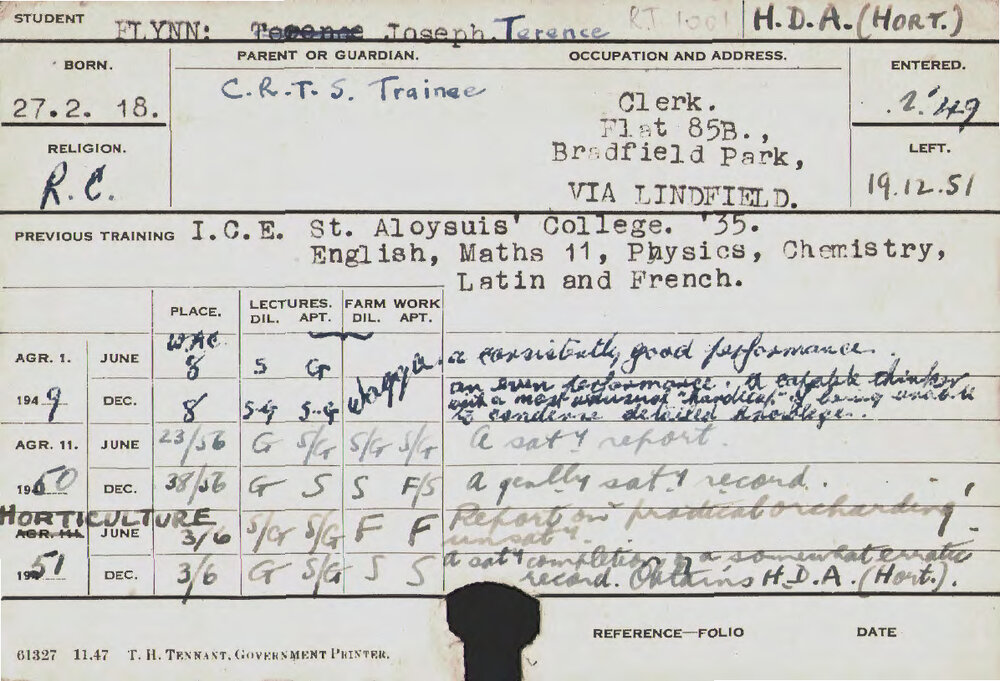 STUDENT FLYNN: Terence Joseph. Terence RJ 1001 H.D.A. (HORT.)
BORN. PARENT OR GUARDIAN. OCCUPATION AND ADDRESS. ENTERED.
27.2. 18. C.R.T.S. Trainee Clerk. .2.'49
Flat 85B.,
RELIGION. Bradfield Park, LEFT.
R.C. VIA LINDFIELD. 19.12.51
PREVIOUS TRAINING I.C.E. St. Aloysuis' College. '35.
English, Maths 11, Physics, Chemistry,
Latin and French.
PLACE. LECTURES. FARM WORK
DIL. APT. DIL. APT.
W.A.C.
AGR. 1. JUNE 8 S G Wagga. a consistently good performance.
an even performance. A capable thinker
1949 DEC. 8 S-G S-G with a most unusual "handicap" of being unable
to condense detailed knowledge.
AGR. 11. JUNE 23/56 G S/G S/G S/G A sat'y report.
1950 DEC. 38/56 G S S F/S A genlly sat'y record.
HORTICULTURE
AGR. III. JUNE 3/6 S/G S/G F F Report on practical orcharding
unsat'y.
1951 DEC. 3/6 G S/G S S A sat'y completion a somewhat erratic
record. Obtains H.D.A. (Hort.).
REFERENCE—FOLIO DATE
61327 11.47 T. H. TENNANT, GOVERNMENT PRINTER.